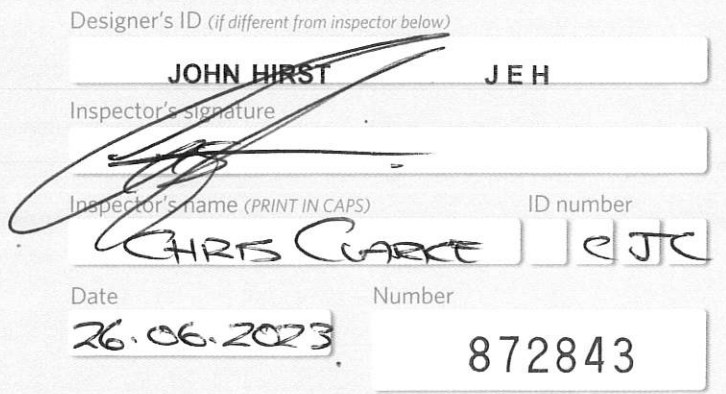 Designer's ID (if different from inspector below)
JOHN HIRST JEH
Inspector's signature
Inspector's name (PRINT IN CAPS) ID number
CHRIS CLARKE CJC
Date Number
26.06.2023 872843